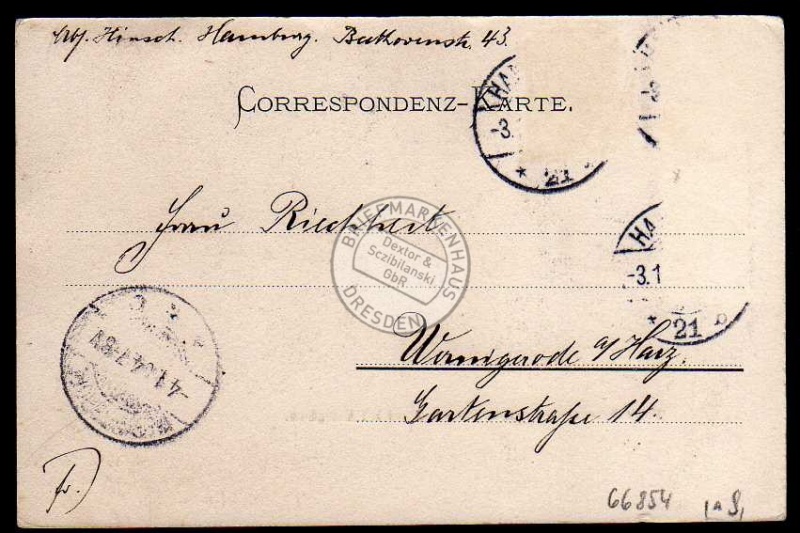 Abs. Hinsch. Hamburg. Beethovenstr. 43.
CORRESPONDENZ-KARTE.
HA
-3.
* 21
Frau Riechheit
BRIEFMARKENHAUS
Dextor &
Sczibilanski
GbR
DRESDEN
HA
-3.1
* 21 b
-4.1.04.7-8V
Wernigerode a/Harz.
Gartenstraße 14
fr.)
66854